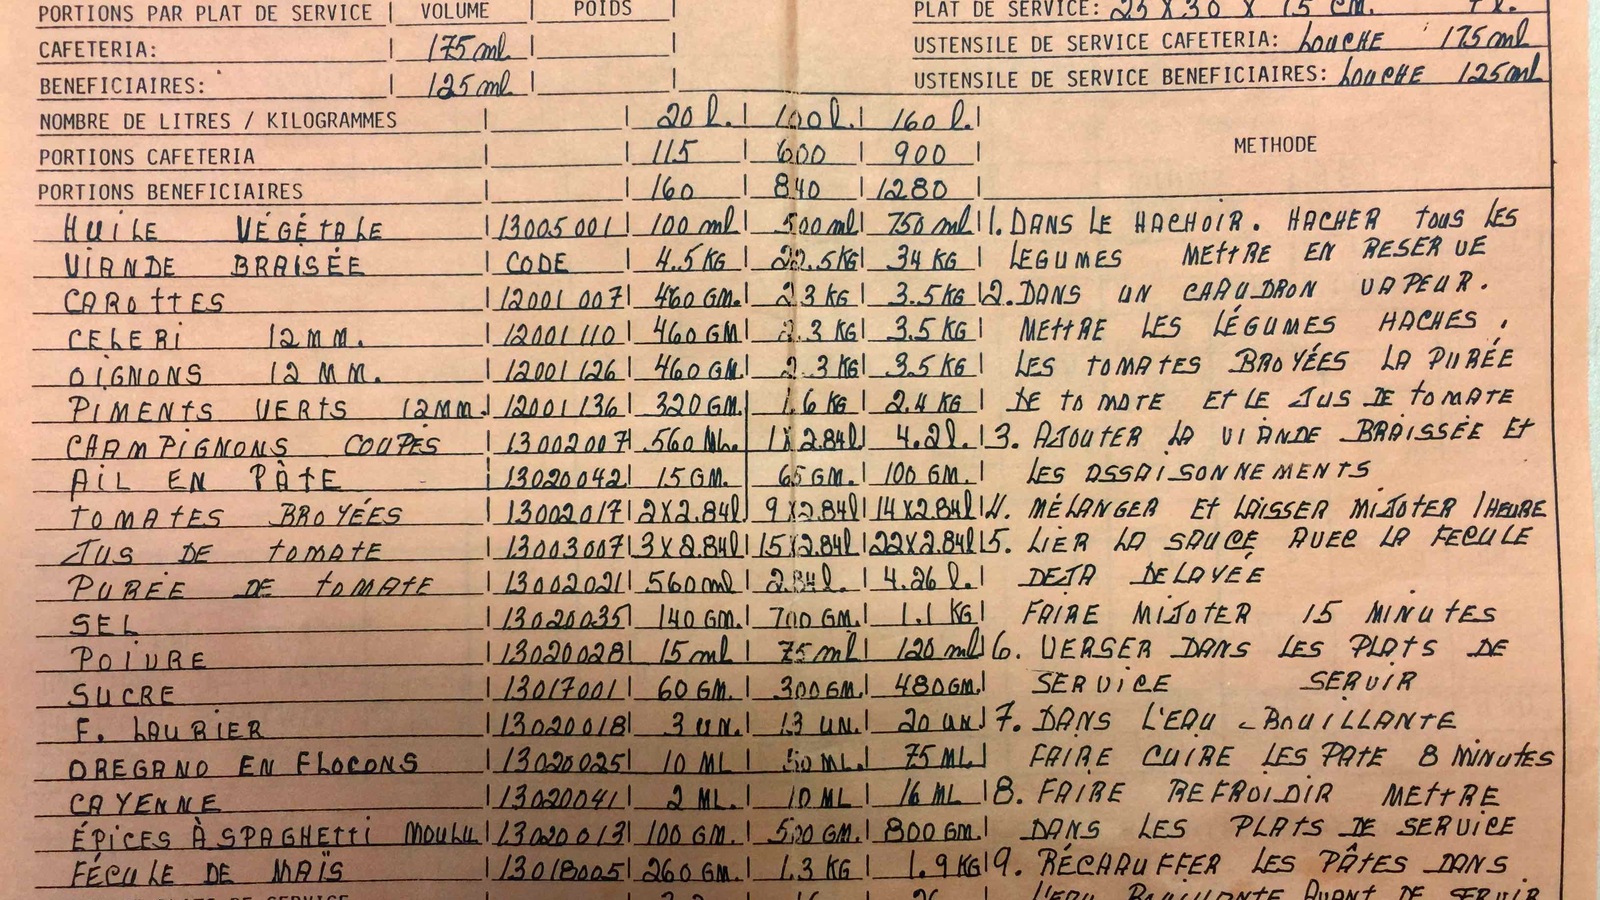 PORTIONS PAR PLAT DE SERVICE | VOLUME | POIDS | PLAT DE SERVICE: 25 X 30 X 15 CM.
CAFETERIA: | 175 ml | USTENSILE DE SERVICE CAFETERIA: LOUCHE 175 ml
BENEFICIAIRES: | 125 ml | USTENSILE DE SERVICE BENEFICIAIRES: LOUCHE 125 ml
NOMBRE DE LITRES / KILOGRAMMES | 20 l. | 100 l. | 160 l. |
METHODE
PORTIONS CAFETERIA | 115 | 600 | 900
PORTIONS BENEFICIAIRES | 160 | 840 | 1280
HUILE VÉGÉTALE | 13005001 | 100 ml | 500 ml | 750 ml | 1. DANS LE HACHOIR. HACHER TOUS LES
VIANDE BRAISÉE | CODE | 4.5 KG | 22.5 KG | 34 KG | LEGUMES METTRE EN RESERVE
CAROTTES | 12001007 | 460 GM. | 2.3 KG | 3.5 KG | 2. DANS UN CAAUDRON VAPEUR.
CELERI 12 MM. | 12001110 | 460 GM | 2.3 KG | 3.5 KG | METTRE LES LÉGUMES HACHES.
OIGNONS 12 MM. | 12001126 | 460 GM. | 2.3 KG | 3.5 KG | LES TOMATES BROYÉES LA PURÉE
PIMENTS VERTS 12 MM. | 12001136 | 320 GM. | 1.6 KG | 2.4 KG | DE TOMATE ET LE JUS DE TOMATE
CHAMPIGNONS COUPÉS | 13002007 | 560 ML. | 1 X 2.84 l | 4.2 l. | 3. AJOUTER LA VIANDE BRAISSÉE ET
AIL EN PÂTE | 13020042 | 15 GM. | 65 GM. | 100 GM. | LES ASSAISONNEMENTS
TOMATES BROYÉES | 13002017 | 2 X 2.84 l | 9 X 2.84 l | 14 X 2.84 l | 4. MÉLANGER ET LAISSER MIJOTER 1 HEURE
JUS DE TOMATE | 13003007 | 3 X 2.84 l | 15 X 2.84 l | 22 X 2.84 l | 5. LIER LA SAUCE AVEC LA FECULE
PURÉE DE TOMATE | 13002021 | 560 ml | 2.84 l. | 4.26 l. | DEJA DELAYÉE
SEL | 13020035 | 140 GM. | 700 GM. | 1.1 KG | FAIRE MIJOTER 15 MINUTES
POIVRE | 13020028 | 15 ml | 75 ml | 120 ml | 6. VERSER DANS LES PLATS DE
SUCRE | 13017001 | 60 GM. | 300 GM. | 480 GM. | SERVICE SERVIR
F. LAURIER | 13020018 | 3 UN. | 13 UN. | 20 UN | 7. DANS L'EAU BOUILLANTE
OREGANO EN FLOCONS | 13020025 | 10 ML | 50 ML. | 75 ML | FAIRE CUIRE LES PATE 8 MINUTES
CAYENNE | 13020041 | 2 ML. | 10 ML | 16 ML | 8. FAIRE REFROIDIR METTRE
ÉPICES À SPAGHETTI MOULU | 13020013 | 100 GM. | 500 GM. | 800 GM. | DANS LES PLATS DE SERVICE
FÉCULE DE MAÏS | 13018005 | 260 GM. | 1.3 KG | 1.9 KG | 9. RÉCHAUFFER LES PÂTES DANS
L'EAU BOUILLANTE AVANT DE SERVIR